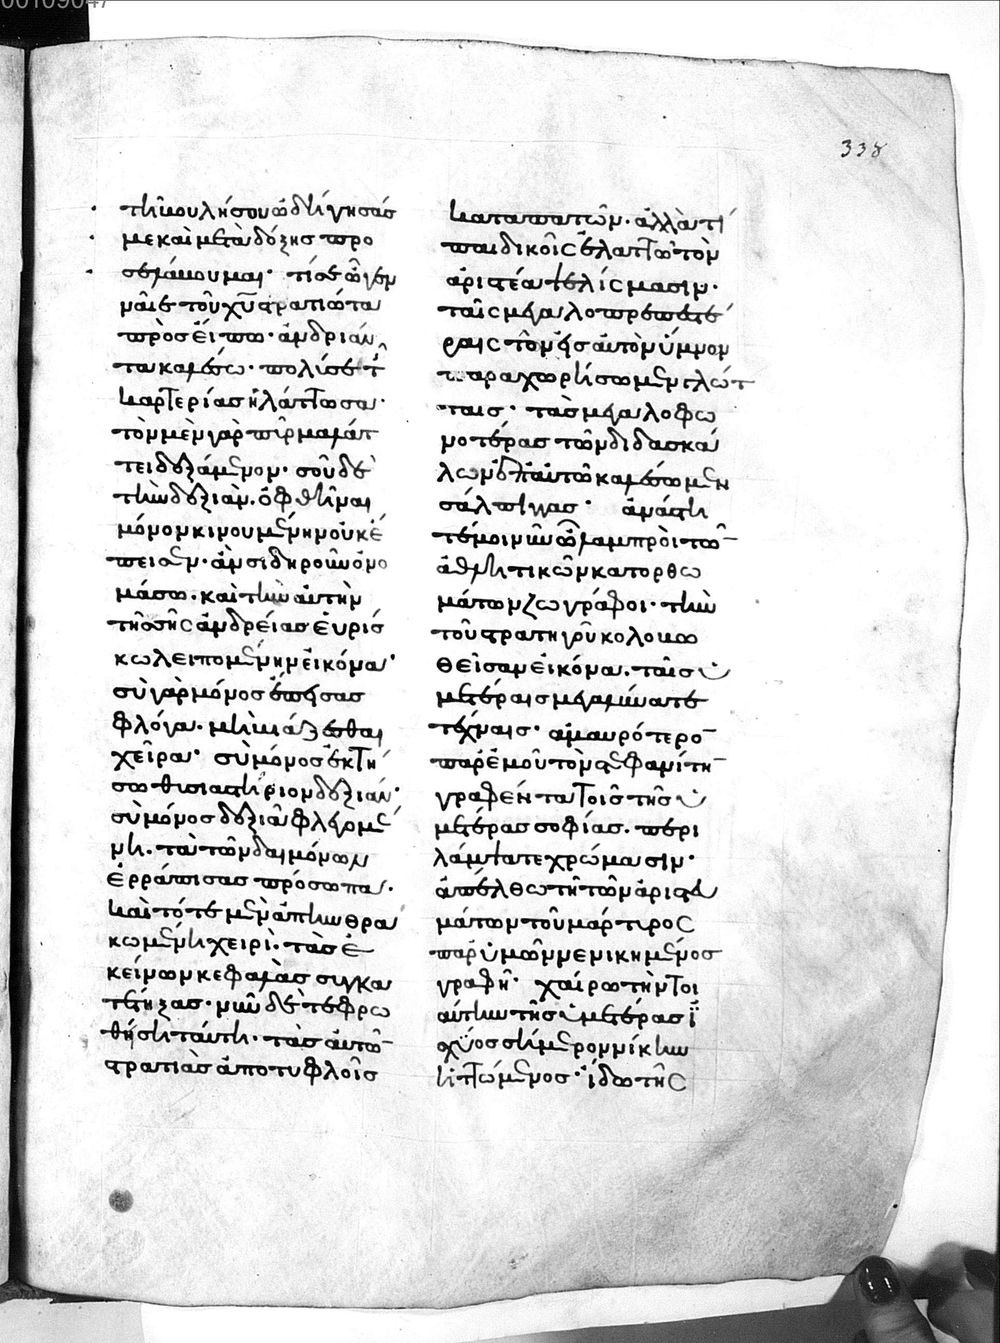 00109047
338
τῆι βουλήσου ὡδήγησάς
με καὶ μετὰ δόξης προ
σελάβου μαι· τίς ὦ γεν
ναῖε τοῦ χῦ στρατιῶτα
πρὸς εἴπω· ἀνδριάν
τα καλέσω· πολύ σε τ
καρτερίας ἠλάττωσα·
τὸν μὲν γὰρ πῦρ μαλάτ
τει δεξάμενον· σοῦ δὲ
τὴν δεξιὰν· ὀφθῆναι
μόνον κινουμένην οὐκ ἔ
πεισεν· ἂν σιδηροῦν ὀνο
μάσω· καὶ τὴν αὐτὴν
τῆς σῆς ἀνδρείας εὑρίσ
κω λειπομένην εἰκόνα·
σὺ γὰρ μόνος ἔπεισας
φλόγα· μὴ βιάζεσθαι
χεῖρα· σὺ μόνος ἐκτή
σω θυσιαστήριον δεξιάν·
σὺ μόνος δεξιᾶ φλεγομέ
νη· τὰ τῶν δαιμόνων
ἐρράπισας πρόσωπα·
καὶ τότε μὲν ἁπτὴν θρα
κωμένη χειρὶ· τὰς ἐ
κείνων κεφαλὰς συγκα
τέπηξας· νῦν δὲ τεφρω
θήσῃ ταύτῃ· τὰς αὐτῶ
στρατιὰς ἀποτυφλοῖς
καταπατῶν· ἀλλὰ τί
παιδικοῖς ἐλαττῶ τὸν
ἀριστέα ψελίσμασιν·
ταῖς μεγαλοπρεπεστέ
ραις τὸν εἰς αὐτὸν ὕμνον
παραχωρήσωμεν γλώτ
ταις· τὰς μεγαλοφω
νοτέρας τῶν διδασκά
λων ἐπ αὐτῶ καλέσωμεν
σάλπιγγας· ἀνάστη
τέ μοι νῦν ὦ λαμπροὶ τῶ
ἀθλητικῶν κατορθω
μάτων ζωγράφοι· τὴν
τοῦ στρατηγοῦ κολοβω
θεῖσαν εἰκόνα· ταῖς ὑ
μετέραις μεγαλύνατε
τέχναις· ἀμαυρότερο
παρ ἐμοῦ τὸν στεφανίτη
γραφέντα τοῖς τῆς ὑ
μετέρας σοφίας· περι
λάμψατε χρώμασιν·
ἀπέλθω τῆ τῶν ἀριστευ
μάτων τοῦ μάρτυρος
παρ ὑμῶν νενικημένος
γραφῆ· χαίρω τὴν τοι
αύτην τῆς ὑμετέρας ἰ
σχύος σήμερον νίκην
ἡττώμενος· ἴδω τῆς